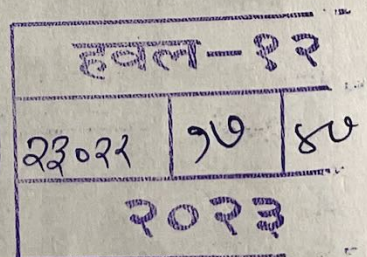 हवल-१२
२३०२२ १७ ४७
२०२३